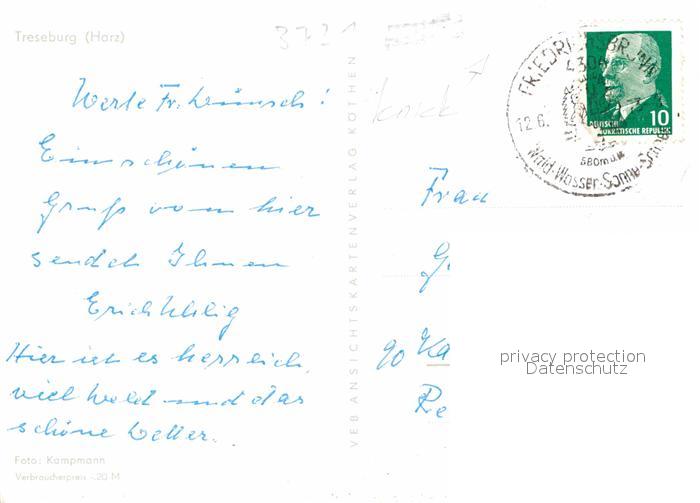 Treseburg (Harz)
3721
Werte Fr. Wünsch!
Ein schönen
Gruß vom hier
sendet Ihnen
Erich Uhlig
Hier ist es herrlich,
viel Wald und das
schöne Wetter.
Foto: Kampmann
Verbraucherpreis -.20 M
VEB ANSICHTSKARTENVERLAG KÖTHEN
knick
FRIEDRICHSBR
4304
12.6.
580m ü.M
Wald-Wasser-
10
DEUTSCHE
DEMOKRATISCHE REPUBLIK
Frau
G.
90 Ka
Re
privacy protection
Datenschutz